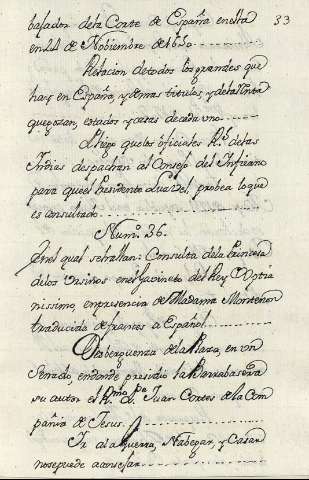 33
baxador dela Corte de España en ella
en 22 de Nobiembre de 1650
Relacion de todos los grandes que
hay en España, y demas titulos, y dela Renta
que gozan, estados y casas de cada uno
Pliego que los oficiales Rs. de las
Indias despachan al Consejo del Infierno
para que el Presidente Luzvel, probea lo que
es consultado
Numo. 36.
En el qual se hallan: Consulta dela Princesa
de los Ursinos en el Gavinete del Rey Xptia
nissimo, en presencia de Madama Montenon
traducida de frances a Español
Desberguenza de la Plaza, en un
Senado, en donde presidio la Barrabasera
su autor el Rmo. Pe. Juan Cortes de la Com
pañia de Jesus.
Ir a la Guerra, Nabegar, y Casar
no se puede aconsejar